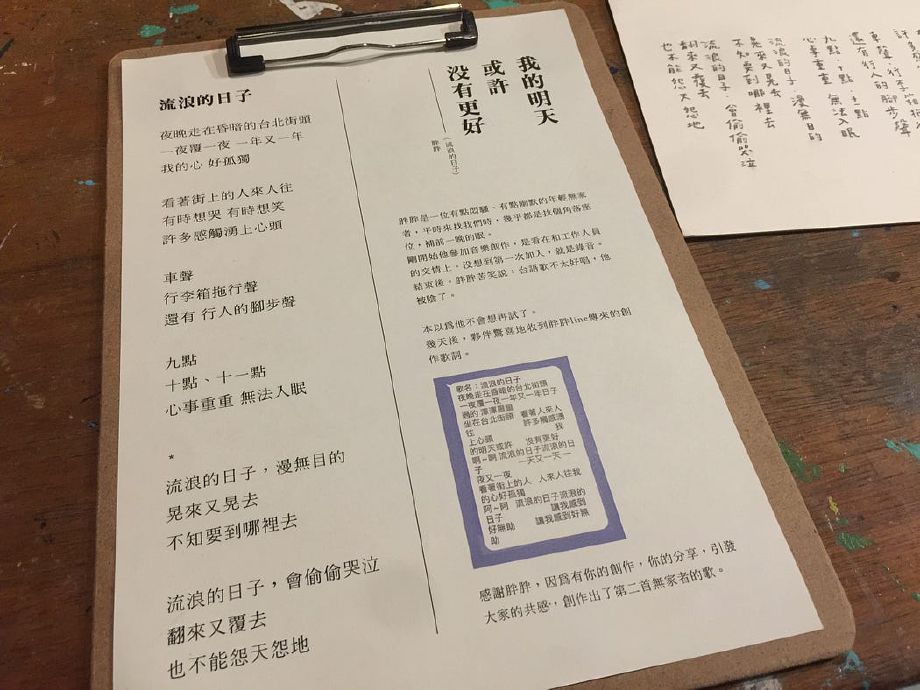 流浪的日子
夜晚走在昏暗的台北街頭
一夜覆一夜 一年又一年
我的心 好孤獨
看著街上的人來人往
有時想哭 有時想笑
許多感觸湧上心頭
車聲
行李箱拖行聲
還有 行人的腳步聲
九點
十點、十一點
心事重重 無法入眠
*
流浪的日子，漫無目的
晃來又晃去
不知要到哪裡去
流浪的日子，會偷偷哭泣
翻來又覆去
也不能怨天怨地
我的明天
或許
沒有更好
——《流浪的日子》
胖胖
胖胖是一位有點悶騷、有點幽默的年輕無家
者，平時來找我們時，幾乎都是找個角落座
位，補前一晚的眠。
剛開始他參加音樂創作，是看在和工作人員
的交情上，沒想到第一次加入，就是錄音。
結束後，胖胖苦笑說：台語歌不太好唱，他
被陰了。
本以為他不會想再試了。
幾天後，夥伴驚喜地收到胖胖line傳來的創
作歌詞。
歌名：流浪的日子
夜晚走在昏暗的台北街頭
一夜覆一夜一年又一年日子
過的 渾渾噩噩 看著人來人
坐在台北街頭 許多觸感湧
往 我
上心頭
的明天或許 沒有更好
啊~啊 流浪的日子流浪的日
子 一天又一天 一
夜又一夜
看著街上的人 人來人往我
的心好孤獨
阿~阿 流浪的日子流浪的
日子 讓我感到
好無助 讓我感到好無
助
感謝胖胖，因為有你的創作，你的分享，引發
大家的共感，創作出了第二首無家者的歌。
還有行人的腳步聲
九點、十點、十一點
心事重重 無法入眠
流浪的日子，漫無目的
晃來又晃去
不知要到哪裡去
流浪的日子，會偷偷哭泣
翻來又覆去
也不能怨天怨地